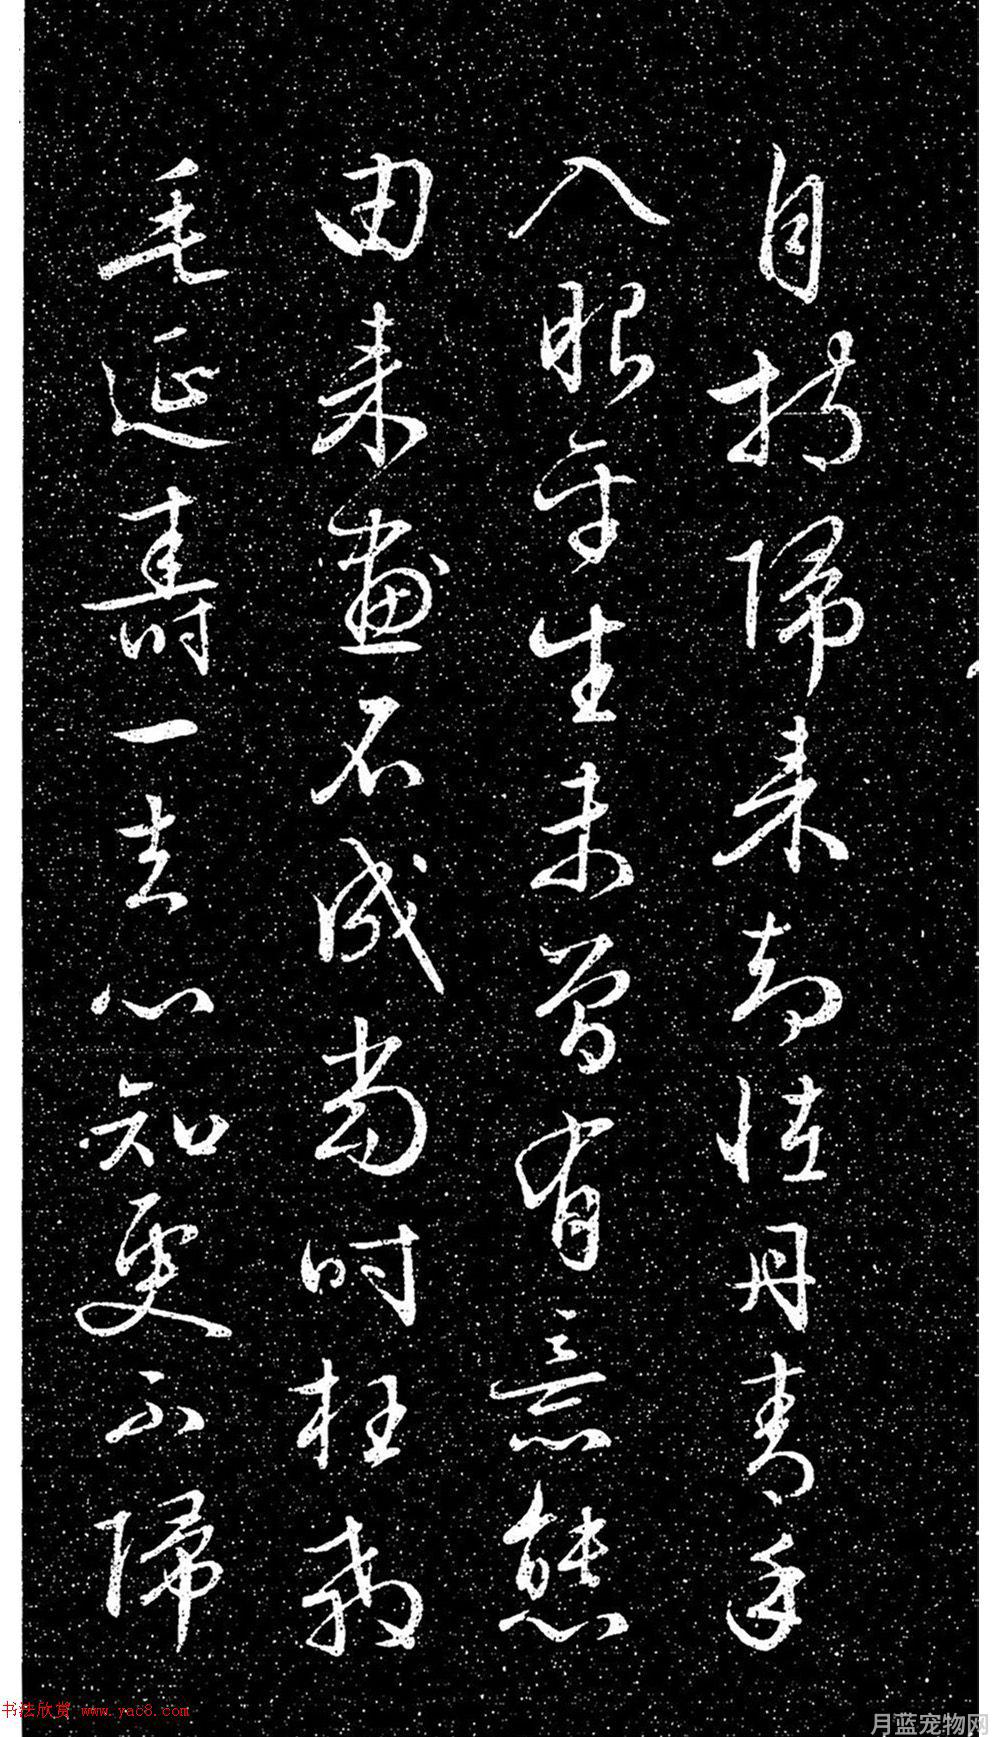 自持歸来却怪丹青手
入眼平生未曾有意態
由来畫不成當时枉殺
毛延壽一去心知更不歸
书法欣赏 www.yac8.com
月蓝宠物网